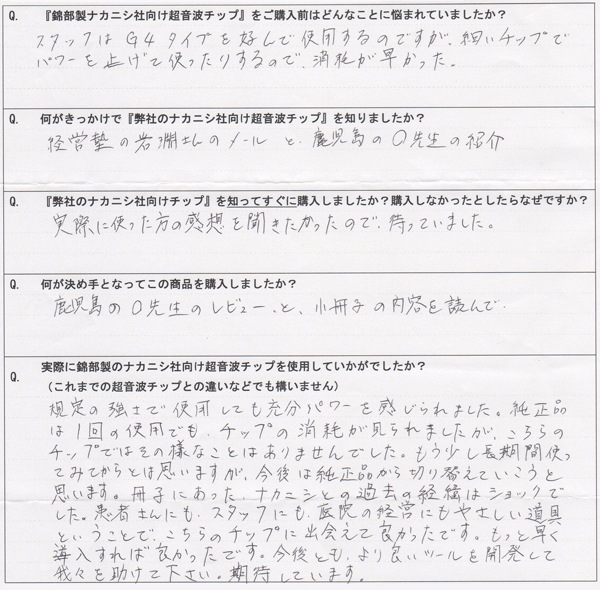 Q. 『錦部製ナカニシ社向け超音波チップ』をご購入前はどんなことに悩まれていましたか？
スタッフはG4タイプを好んで使用するのですが、細いチップで
パワーを上げて使ったりするので、消耗が早かった。
Q. 何がきっかけで『弊社のナカニシ社向け超音波チップ』を知りましたか？
経営塾の岩渕さんのメールと、鹿児島のO先生の紹介
Q. 『弊社のナカニシ社向けチップ』を知ってすぐに購入しましたか？購入しなかったとしたらなぜですか？
実際に使った方の感想を聞きたかったので、待っていました。
Q. 何が決め手となってこの商品を購入しましたか？
鹿児島のO先生のレビュー、と、小冊子の内容を読んで、
Q. 実際に錦部製のナカニシ社向け超音波チップを使用していかがでしたか？
（これまでの超音波チップとの違いなどでも構いません）
規定の強さで使用しても充分パワーを感じられました。純正品
は1回の使用でも、チップの消耗が見られましたが、こちらの
チップではその様なことはありませんでした。もう少し長期間使っ
てみてからとは思いますが、今後は純正品から切り替えていこうと
思います。冊子にあった、ナカニシとの過去の経緯はショックで
した。患者さんにも、スタッフにも、医院の経営にもやさしい道具
ということで、こちらのチップに出会えて良かったです。もっと早く
導入すれば良かったです。今後とも、より良いツールを開発して
我々を助けて下さい。期待しています。